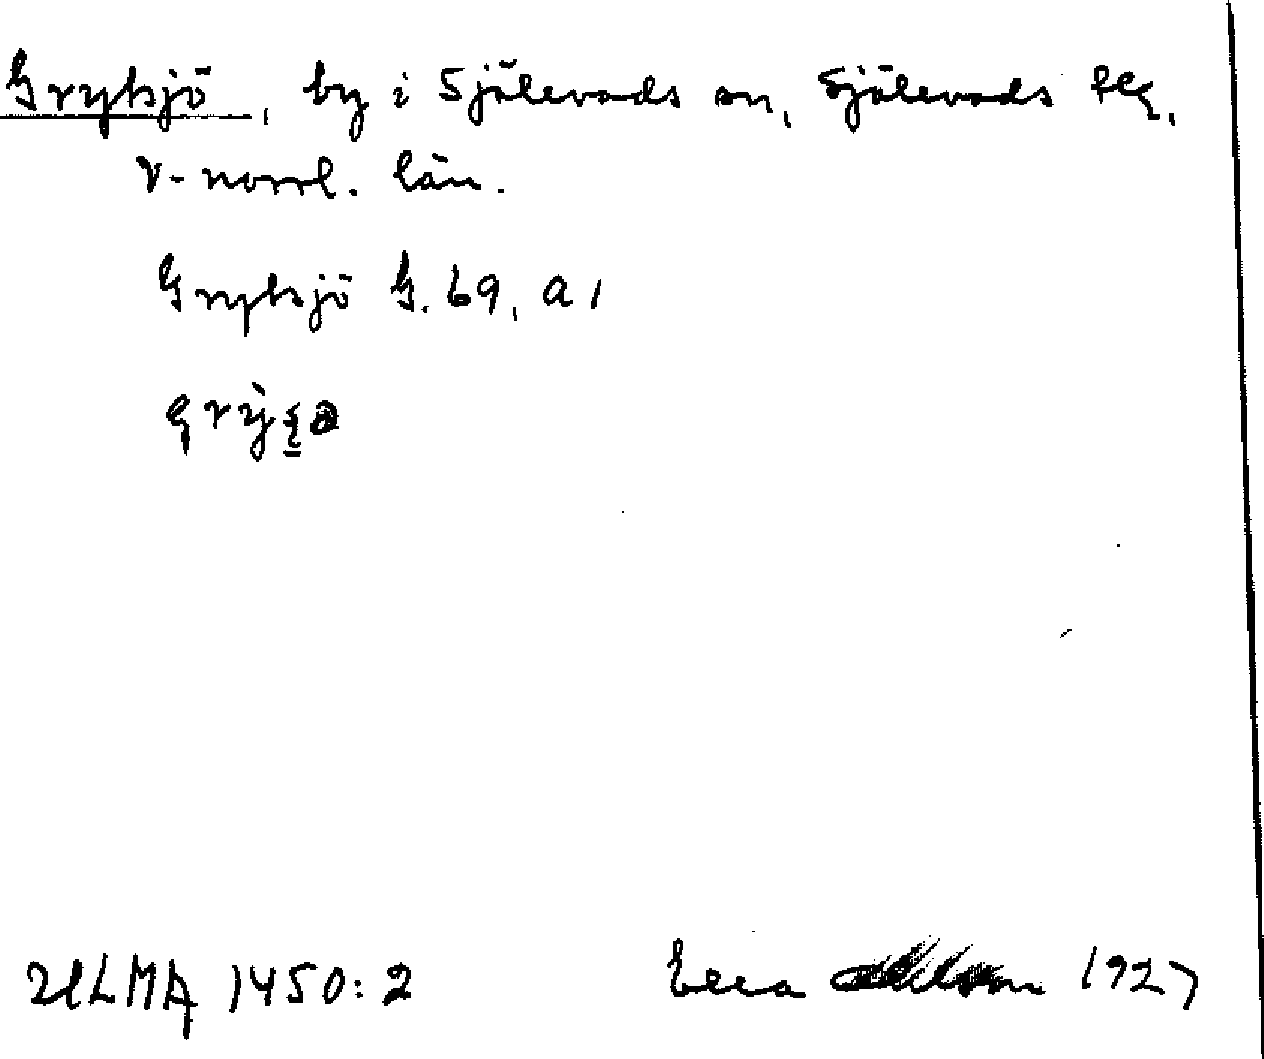 Gryssjö, by i Själevads sn, Själevads tlg,
V-norrl. län.
Gryssjö G. 69, a1
ULMA 1450:2 1927